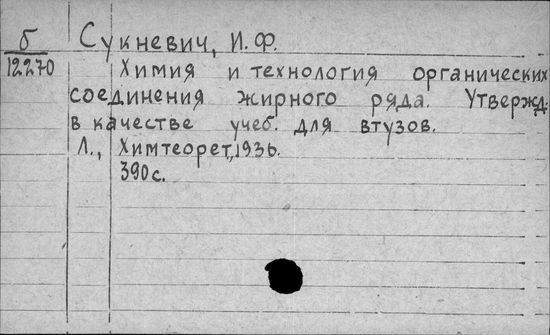 б Сукневич, И.Ф.
12270 Химия и технология органических
соединения жирного ряда. Утвержд.
в качестве учеб. для втузов.
Л., Химтеорет, 1936.
390с.